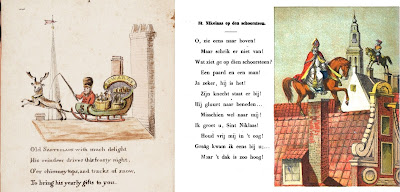 Old SANTECLAUS with much delight
His reindeer drives this frosty night,
O'er chimney tops, and tracks of snow,
To bring his yearly gifts to you.
St. Nikolaas op den schoorsteen.
O, zie eens naar boven!
Maar schrik er niet van!
Wat ziet ge op dien schoorsteen?
Een paard en een man!
Ja zeker, hij is het!
Zijn knecht staat er bij!
Hij gluurt naar beneden...
Misschien wel naar mij!
Ik groet u, Sint Niklaas!
Houd vrij mij in 't oog!
Graag kwam ik eens bij u...
Maar 't dak is zoo hoog!